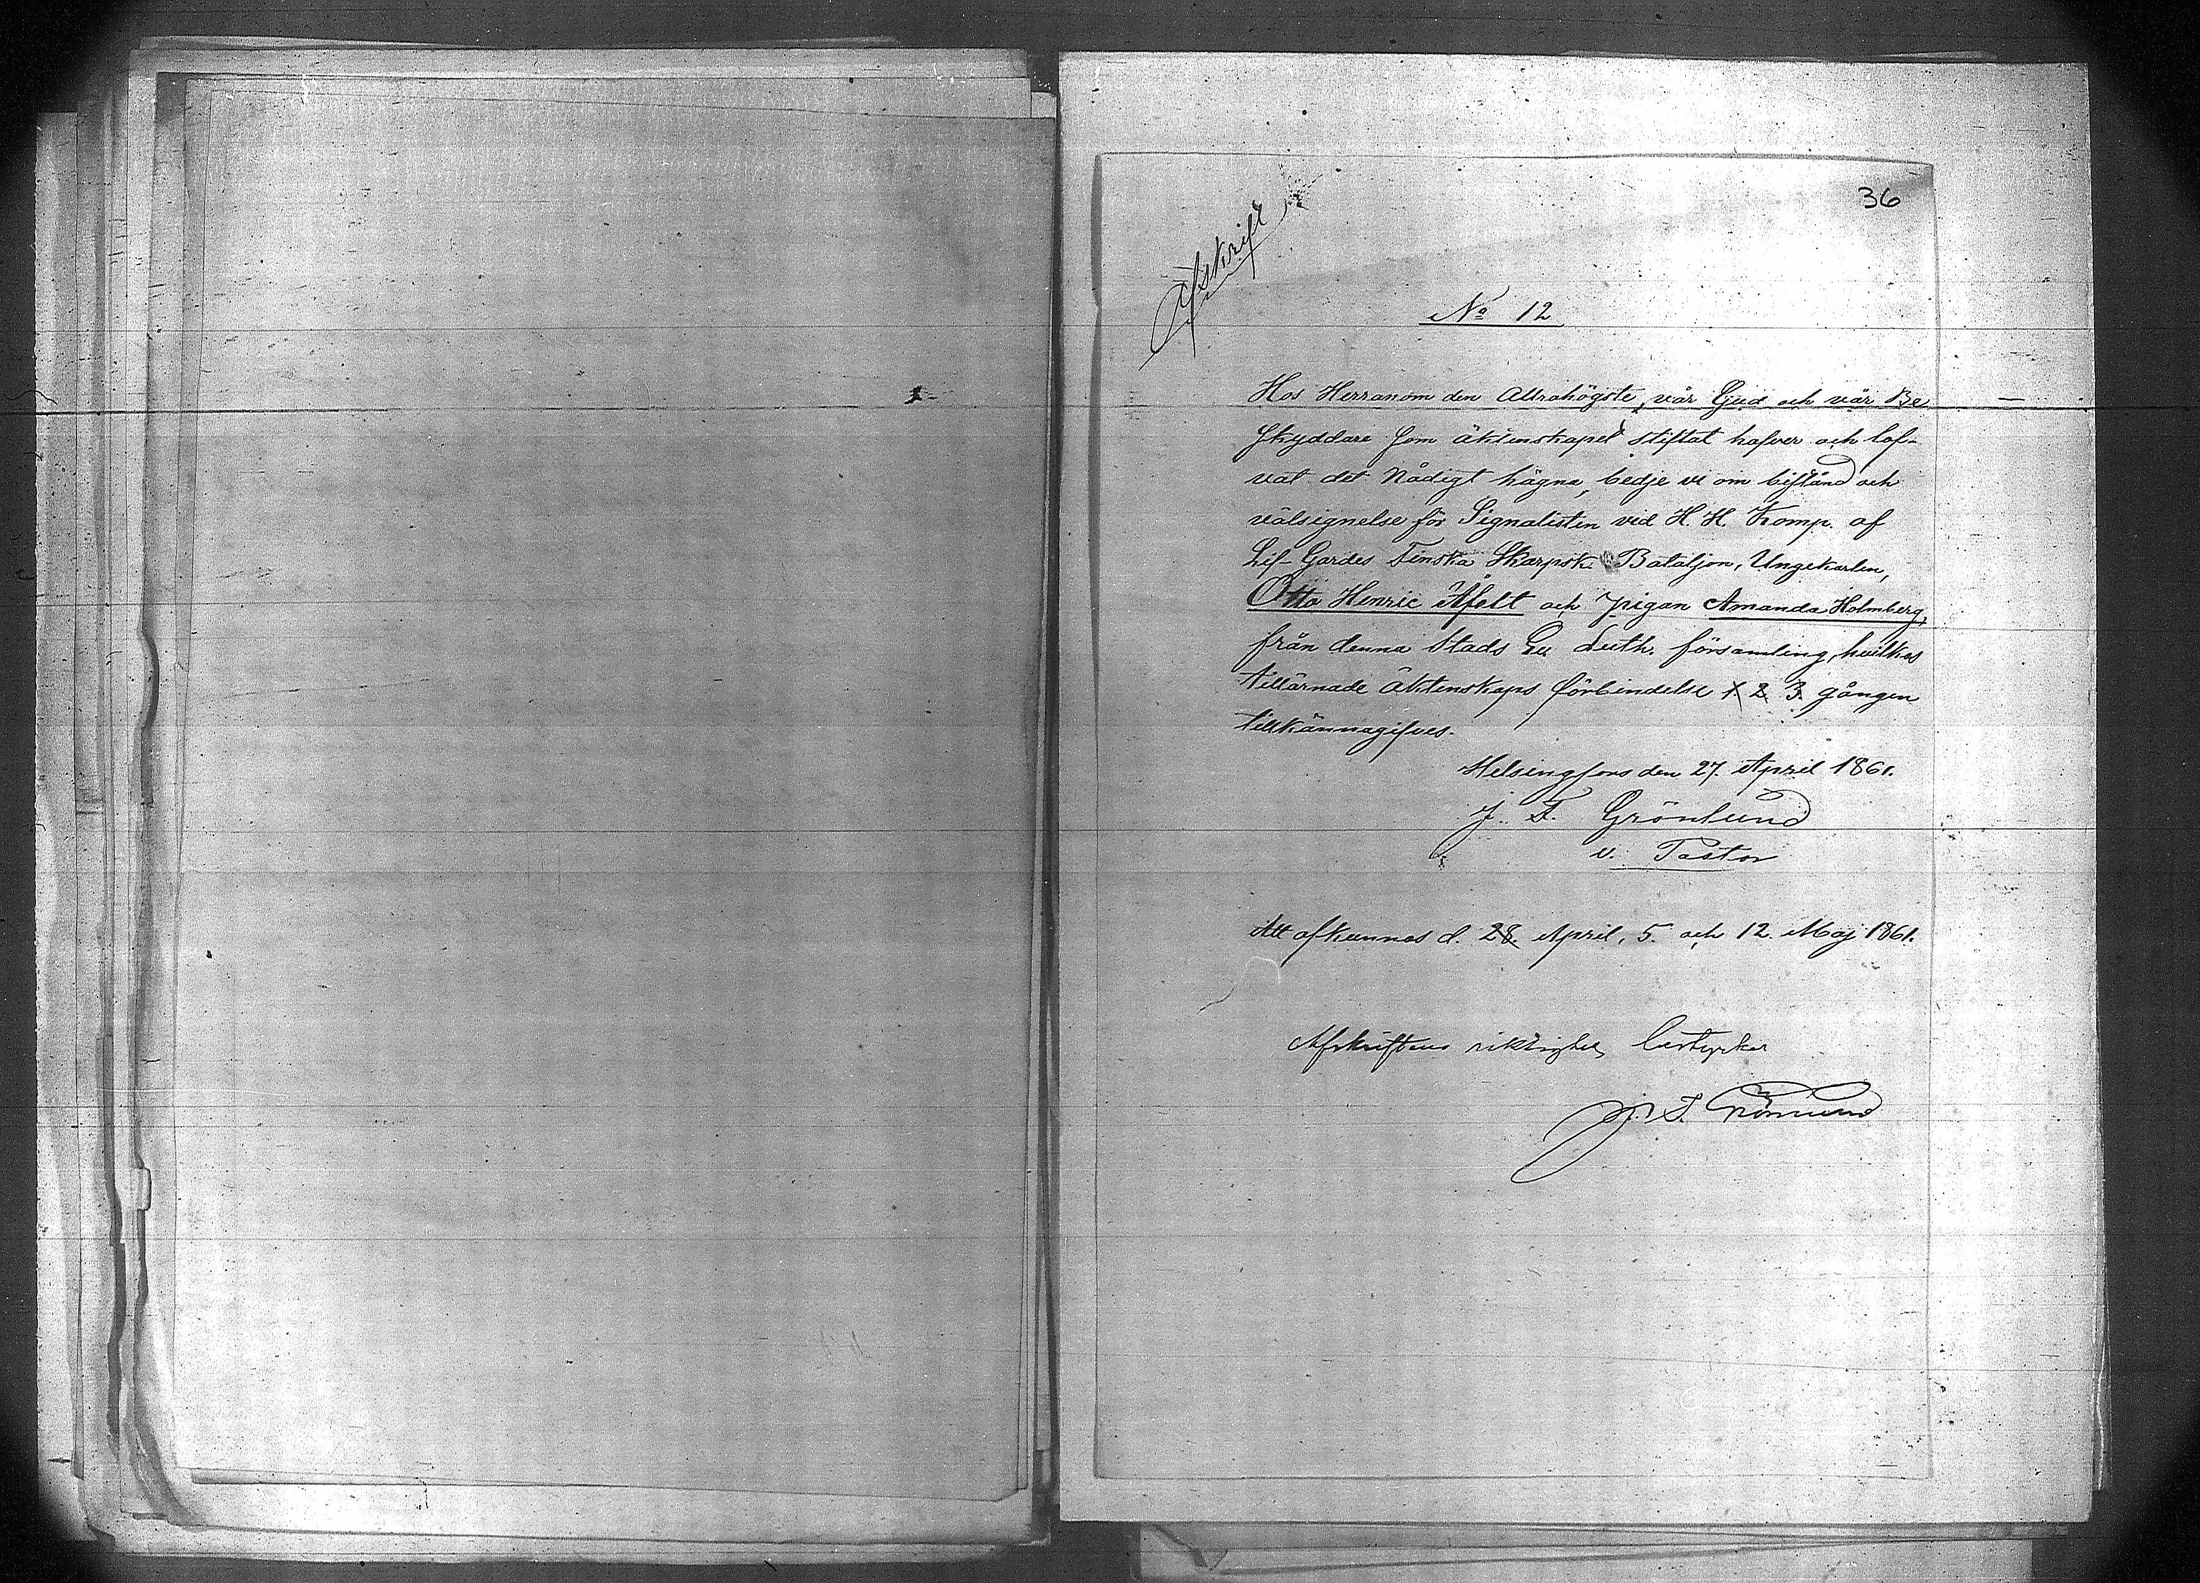 36
Afskrift
No 12
Hos Herranom den Allrahögste, vår Gud och vår Be
skyddare som äktenskapet stiftat hafver och lof-
vat det Nådigt hägna, bedje vi om bistånd och
välsignelse för Signalisten vid H. H. Komp. af
Lif-Gardes Finska Skarpsk. Bataljon, Ungekarlen,
Otto Henric Åfelt och pigan Amanda Holmberg,
från denna Stads Ev Luth. församling, hvilkas
tillärnade äktenskaps förbindelse 1. 2. 3. gången
tillkännagifves.
Helsingfors den 27. April 1861.
J. F. Grönlund
v. Pastor
Att afkunnas d. 28. April, 5. och 12. Maj 1861.
Afskriftens riktighet bestyrker
J. F. Grönlund